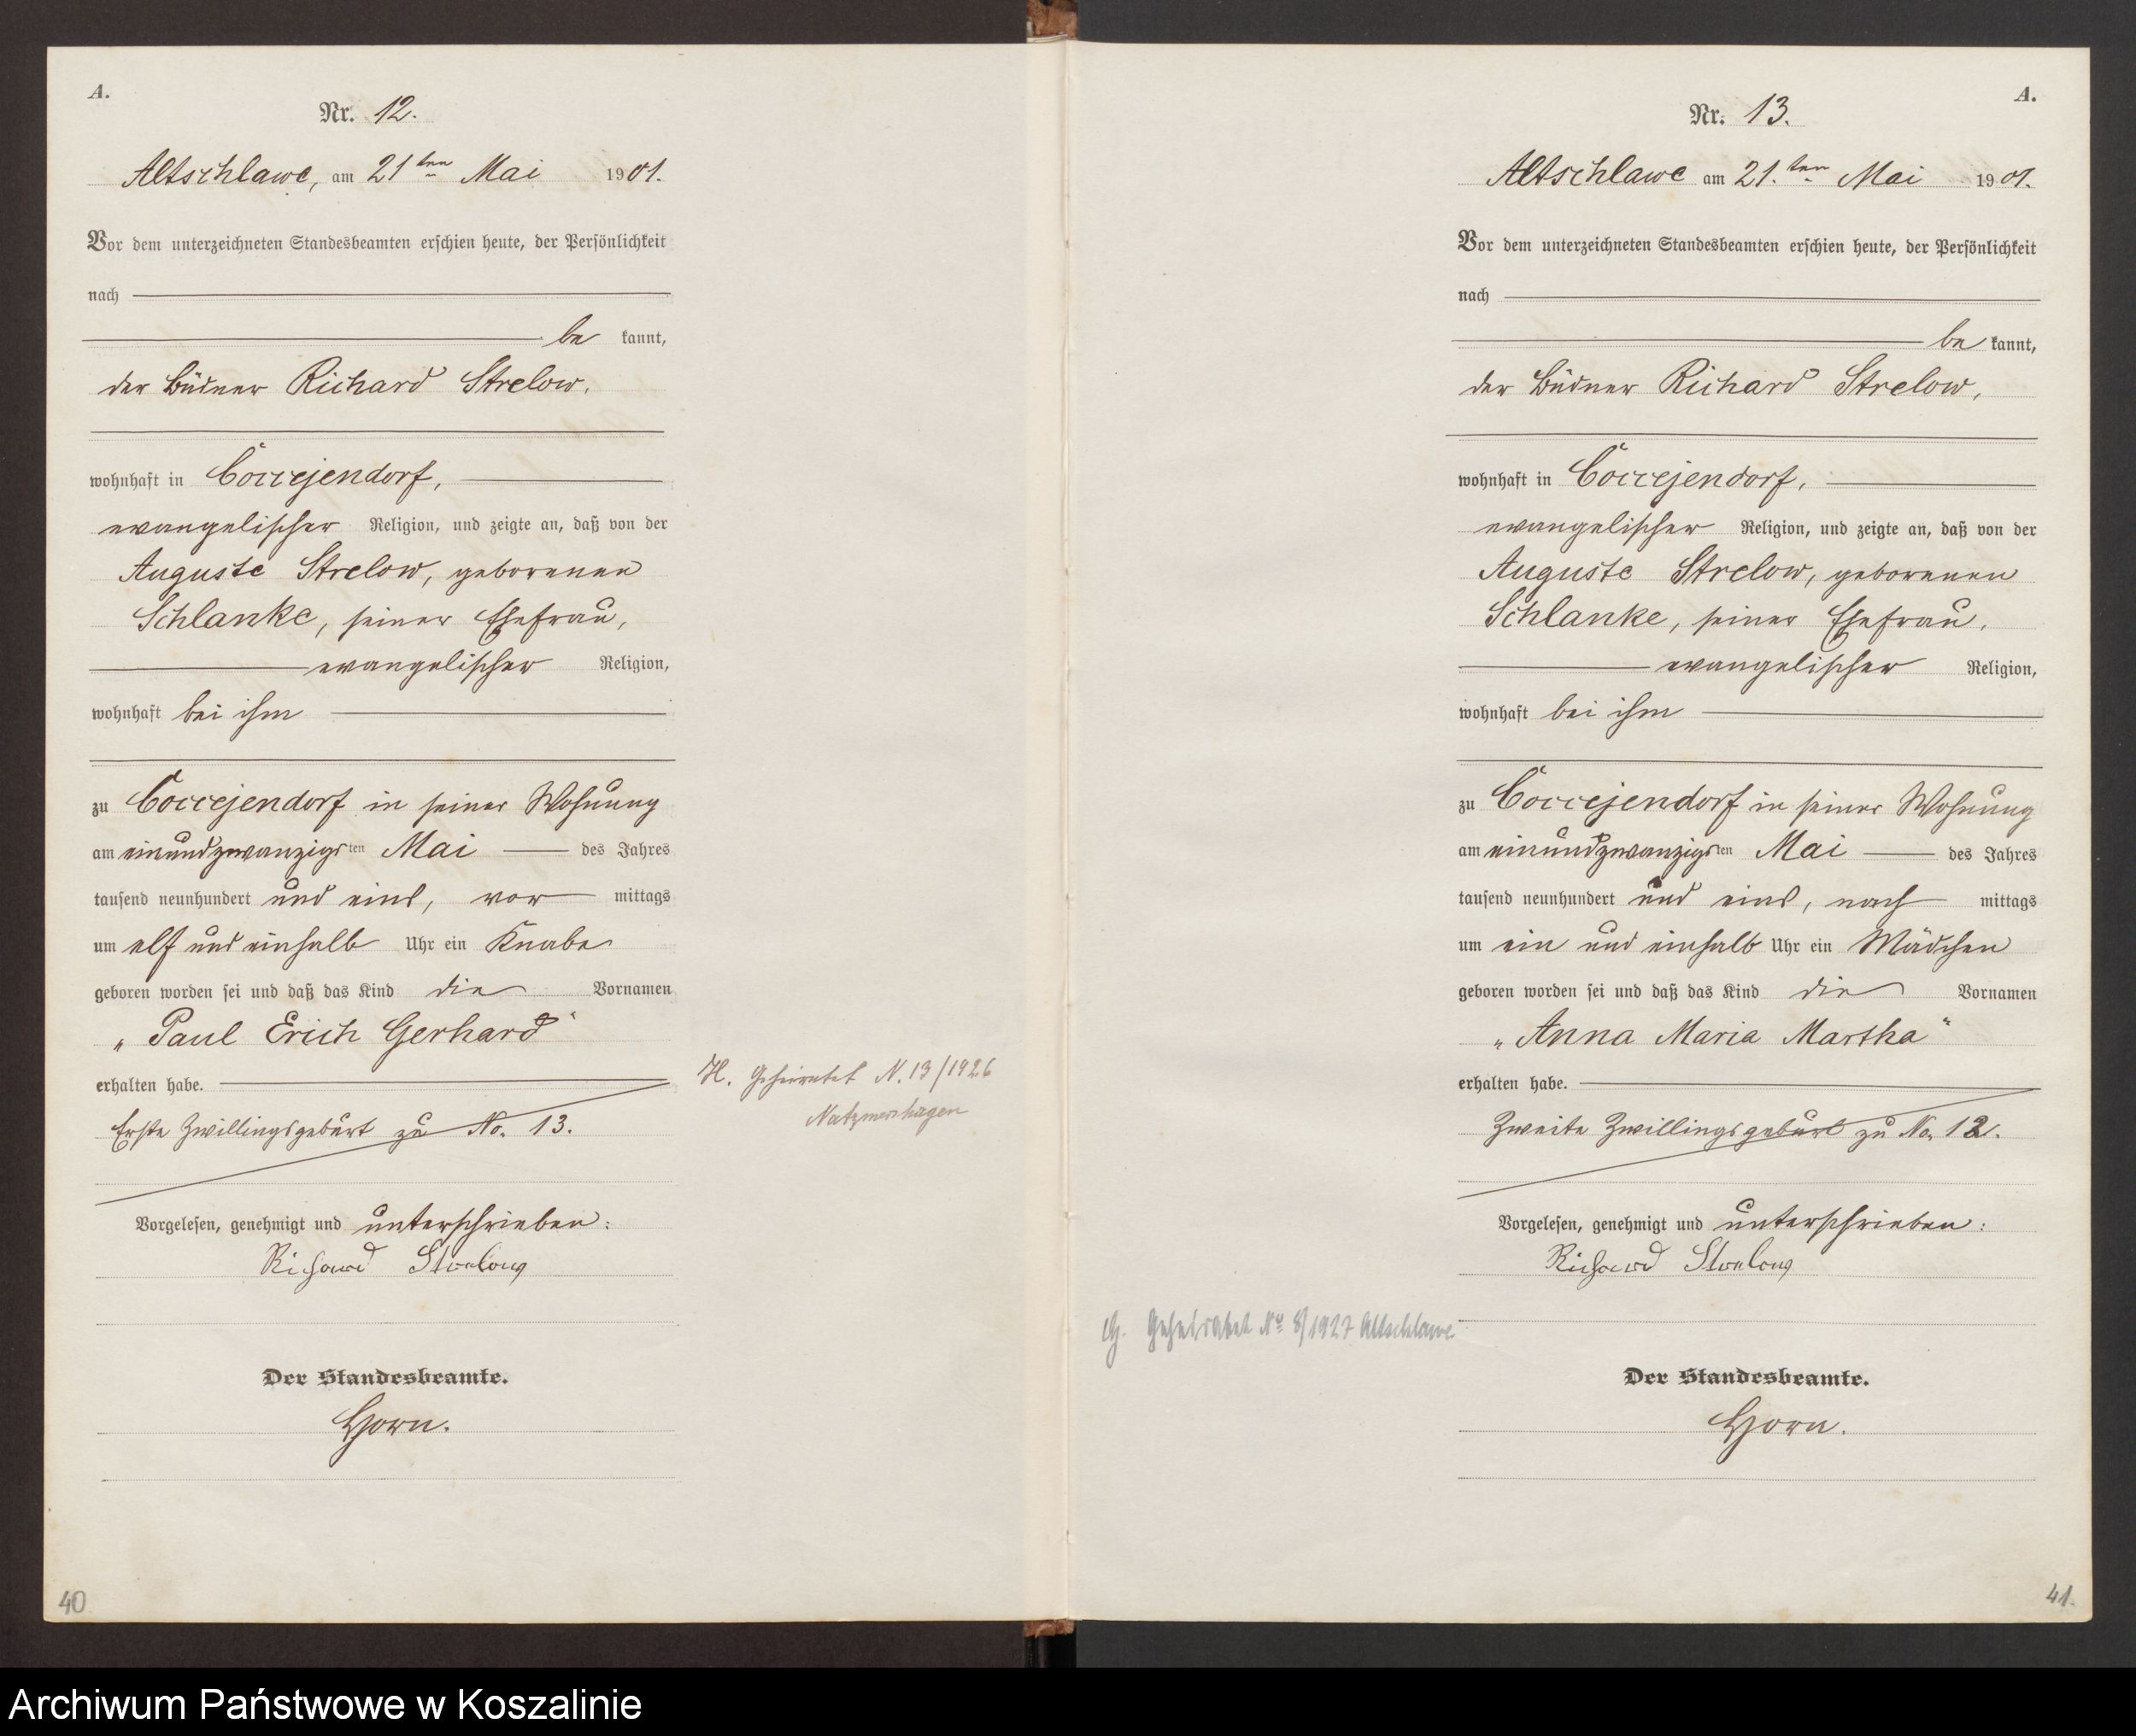 A.
Nr. 12.
Altschlawe, am 21ten Mai 1901.
Vor dem unterzeichneten Standesbeamten erschien heute, der Persönlichkeit
nach
be kannt,
der Büdner Richard Strelow,
wohnhaft in Coccejendorf,
evangelischer Religion, und zeigte an, daß von der
Auguste Strelow, geborenen
Schlanke, seiner Ehefrau,
evangelischer Religion,
wohnhaft bei ihm
zu Coccejendorf in seiner Wohnung
am einundzwanzigsten Mai des Jahres
tausend neunhundert und eins, vor mittags
um elf und einhalb Uhr ein Knabe
geboren worden sei und daß das Kind die Vornamen
„Paul Erich Gerhard“
erhalten habe.
Erste Zwillingsgeburt zu No. 13.
Vorgelesen, genehmigt und unterschrieben:
Richard Strelow
Der Standesbeamte.
Horn.
H. Geheiratet N. 13/1926
Natzmershagen
40
A.
Nr. 13.
Altschlawe am 21.ten Mai 1901.
Vor dem unterzeichneten Standesbeamten erschien heute, der Persönlichkeit
nach
be kannt,
der Büdner Richard Strelow,
wohnhaft in Coccejendorf,
evangelischer Religion, und zeigte an, daß von der
Auguste Strelow, geborenen
Schlanke, seiner Ehefrau,
evangelischer Religion,
wohnhaft bei ihm
zu Coccejendorf in seiner Wohnung
am einundzwanzigsten Mai des Jahres
tausend neunhundert und eins, nach mittags
um ein und einhalb Uhr ein Mädchen
geboren worden sei und daß das Kind die Vornamen
„Anna Maria Martha“
erhalten habe.
Zweite Zwillingsgeburt zu No. 12.
Vorgelesen, genehmigt und unterschrieben:
Richard Strelow
G. Geheiratet No 8/1927 Altschlawe
Der Standesbeamte.
Horn.
41.
Archiwum Państwowe w Koszalinie